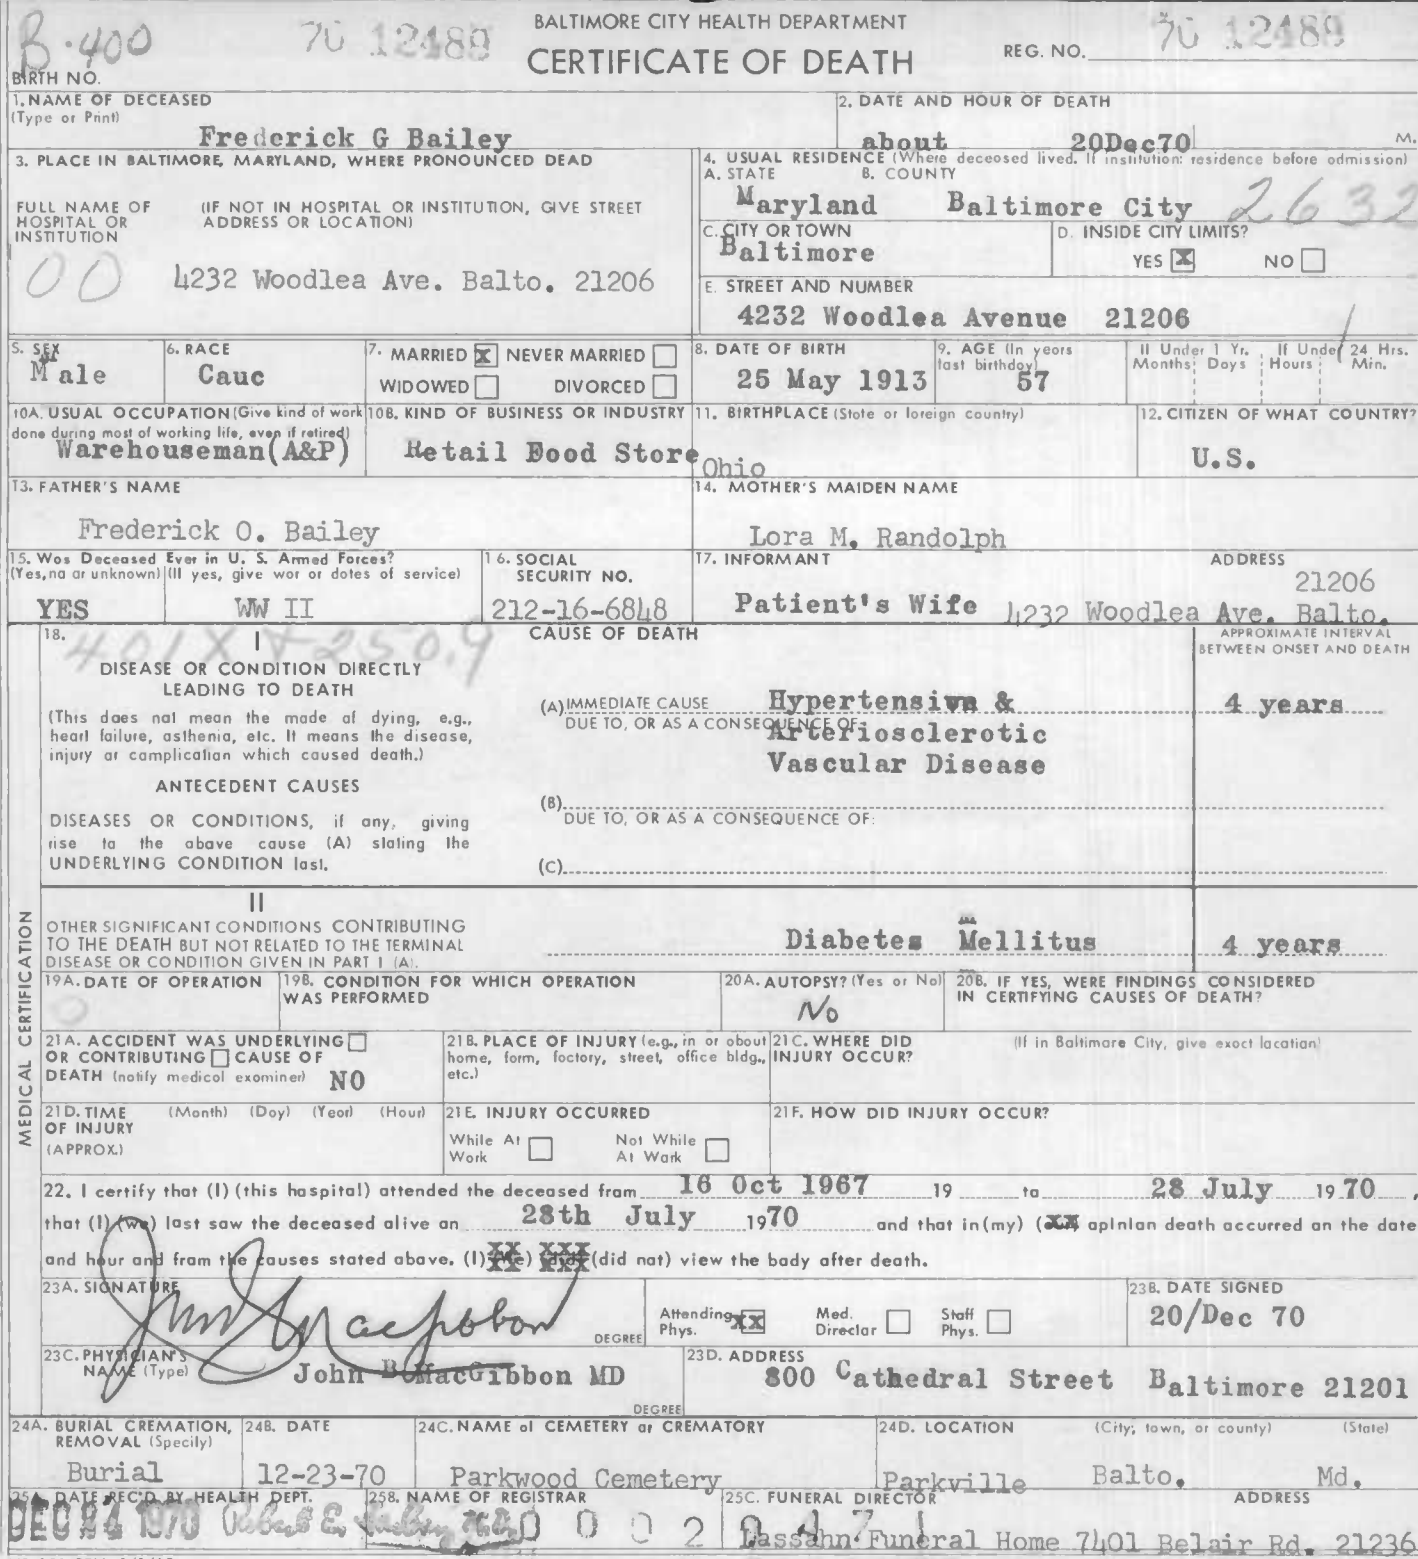 BALTIMORE CITY HEALTH DEPARTMENT
CERTIFICATE OF DEATH
B-400
70 12489
REG. NO. 70 12489
BIRTH NO.
1. NAME OF DECEASED
(Type or Print)
Frederick G Bailey
2. DATE AND HOUR OF DEATH
about 20Dec70 M.
3. PLACE IN BALTIMORE, MARYLAND, WHERE PRONOUNCED DEAD
FULL NAME OF HOSPITAL OR INSTITUTION
(IF NOT IN HOSPITAL OR INSTITUTION, GIVE STREET ADDRESS OR LOCATION)
00
4232 Woodlea Ave. Balto. 21206
4. USUAL RESIDENCE (Where deceosed lived. If institution: residence before odmission)
A. STATE B. COUNTY
Maryland Baltimore City 2632
C. CITY OR TOWN
Baltimore
D. INSIDE CITY LIMITS?
YES X NO
E. STREET AND NUMBER
4232 Woodlea Avenue 21206
5. SEX
Male
6. RACE
Cauc
7. MARRIED X NEVER MARRIED
WIDOWED DIVORCED
8. DATE OF BIRTH
25 May 1913
9. AGE (In yeors last birthday)
57
If Under 1 Yr. If Under 24 Hrs.
Months Days Hours Min.
10A. USUAL OCCUPATION (Give kind of work done during most of working life, even if retired)
Warehouseman(A&P)
10B. KIND OF BUSINESS OR INDUSTRY
Retail Food Store
11. BIRTHPLACE (State or foreign country)
Ohio
12. CITIZEN OF WHAT COUNTRY?
U.S.
13. FATHER'S NAME
Frederick O. Bailey
14. MOTHER'S MAIDEN NAME
Lora M. Randolph
15. Wos Deceased Ever in U. S. Armed Forces?
(Yes, no or unknown) (If yes, give wor or dotes of service)
YES WW II
16. SOCIAL SECURITY NO.
212-16-6848
17. INFORMANT ADDRESS
21206
Patient's Wife 4232 Woodlea Ave. Balto.
18. 401X + 250.9
I
CAUSE OF DEATH
APPROXIMATE INTERVAL BETWEEN ONSET AND DEATH
DISEASE OR CONDITION DIRECTLY
LEADING TO DEATH
(This does not mean the mode of dying, e.g.,
heart failure, asthenia, etc. It means the disease,
injury or complication which caused death.)
ANTECEDENT CAUSES
DISEASES OR CONDITIONS, if any, giving
rise to the above cause (A) stating the
UNDERLYING CONDITION last.
(A) IMMEDIATE CAUSE Hypertensive & 4 years
DUE TO, OR AS A CONSEQUENCE OF:
Arteriosclerotic
Vascular Disease
(B)
DUE TO, OR AS A CONSEQUENCE OF:
(C)
MEDICAL CERTIFICATION
II
OTHER SIGNIFICANT CONDITIONS CONTRIBUTING
TO THE DEATH BUT NOT RELATED TO THE TERMINAL
DISEASE OR CONDITION GIVEN IN PART I (A).
Diabetes Mellitus 4 years
19A. DATE OF OPERATION
0
19B. CONDITION FOR WHICH OPERATION WAS PERFORMED
20A. AUTOPSY? (Yes or No)
No
20B. IF YES, WERE FINDINGS CONSIDERED IN CERTIFYING CAUSES OF DEATH?
21A. ACCIDENT WAS UNDERLYING
OR CONTRIBUTING CAUSE OF
DEATH (notify medicol exominer) NO
21B. PLACE OF INJURY (e.g., in or obout home, form, foctory, street, office bldg., etc.)
21C. WHERE DID INJURY OCCUR?
(If in Boltimore City, give exoct locotion)
21D. TIME OF INJURY (APPROX.)
(Month) (Doy) (Yeor) (Hour)
21E. INJURY OCCURRED
While At Work Not While At Work
21F. HOW DID INJURY OCCUR?
22. I certify that (I) (this hospital) attended the deceased from 16 Oct 1967 19 to 28 July 1970,
that (I) (we) last saw the deceased alive on 28th July 1970 and that in (my) (xx) opinion death occurred on the date
and hour and from the causes stated above. (I) (we) (did) (did not) view the body after death.
23A. SIGNATURE
DEGREE
Attending Phys. XX Med. Director Staff Phys.
23B. DATE SIGNED
20/Dec 70
23C. PHYSICIAN'S NAME (Type)
John B MacGibbon MD
DEGREE
23D. ADDRESS
800 Cathedral Street Baltimore 21201
24A. BURIAL CREMATION, REMOVAL (Specify)
Burial
24B. DATE
12-23-70
24C. NAME of CEMETERY or CREMATORY
Parkwood Cemetery
24D. LOCATION (City, town, or county) (State)
Parkville Balto. Md.
25A. DATE REC'D BY HEALTH DEPT.
DEC 24 1970
25B. NAME OF REGISTRAR
Robert E.
25C. FUNERAL DIRECTOR ADDRESS
Lassahn Funeral Home 7401 Belair Rd. 21236